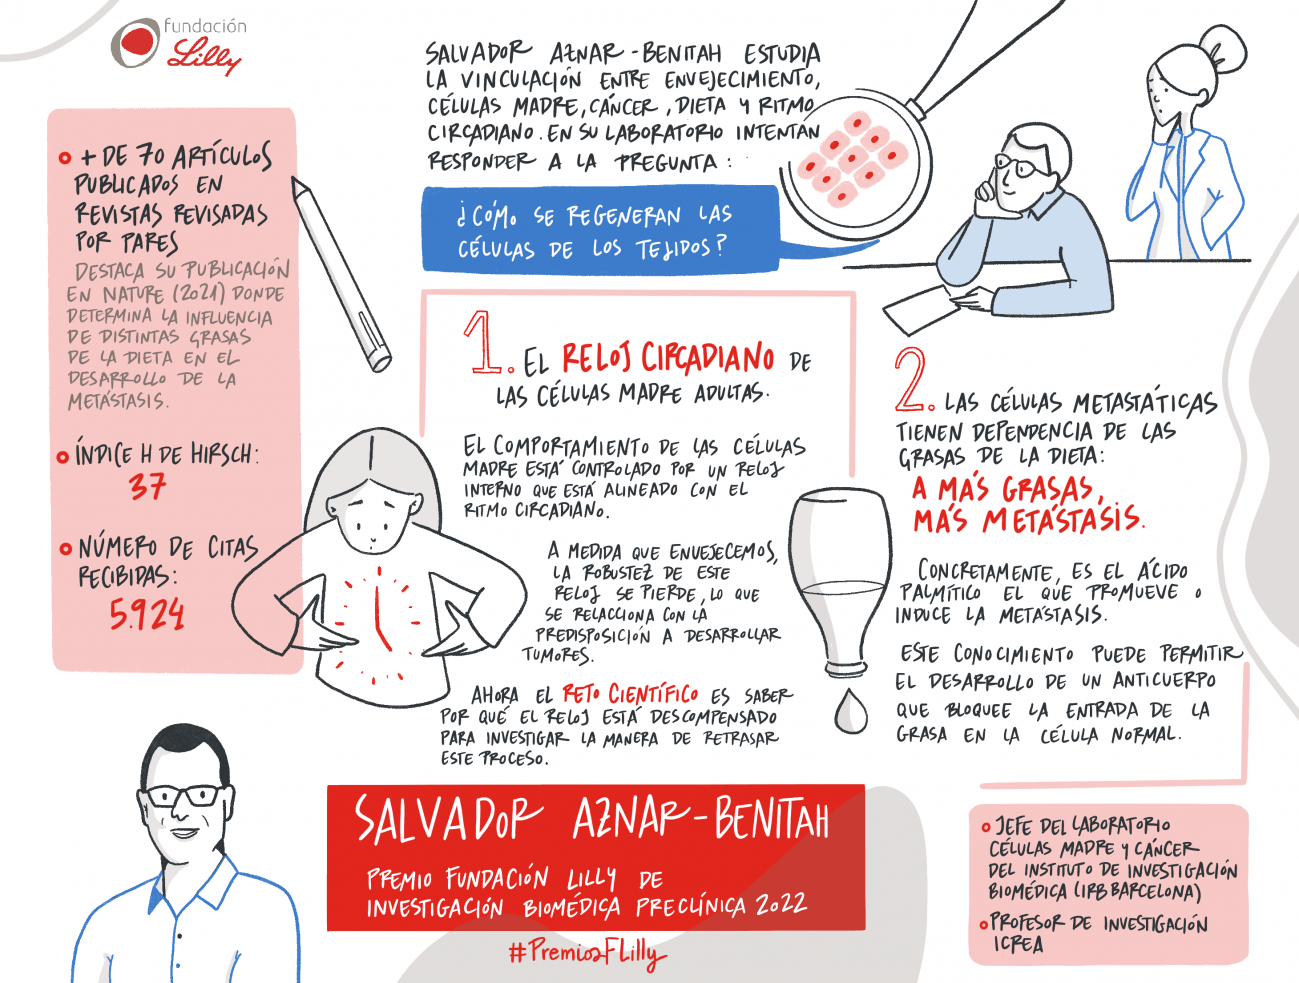 fundación
Lilly
SALVADOR AZNAR-BENITAH ESTUDIA
LA VINCULACIÓN ENTRE ENVEJECIMIENTO,
CÉLULAS MADRE, CÁNCER, DIETA Y RITMO
CIRCADIANO. EN SU LABORATORIO INTENTAN
RESPONDER A LA PREGUNTA:
¿CÓMO SE REGENERAN LAS
CÉLULAS DE LOS TEJIDOS?
+ DE 70 ARTÍCULOS
PUBLICADOS EN
REVISTAS REVISADAS
POR PARES
DESTACA SU PUBLICACIÓN
EN NATURE (2021) DONDE
DETERMINA LA INFLUENCIA
DE DISTINTAS GRASAS
DE LA DIETA EN EL
DESARROLLO DE LA
METÁSTASIS.
ÍNDICE H DE HIRSCH:
37
NÚMERO DE CITAS
RECIBIDAS:
5.924
1. EL RELOJ CIRCADIANO DE
LAS CÉLULAS MADRE ADULTAS.
EL COMPORTAMIENTO DE LAS CÉLULAS
MADRE ESTÁ CONTROLADO POR UN RELOJ
INTERNO QUE ESTÁ ALINEADO CON EL
RITMO CIRCADIANO.
A MEDIDA QUE ENVEJECEMOS,
LA ROBUSTEZ DE ESTE
RELOJ SE PIERDE, LO QUE
SE RELACCIONA CON LA
PREDISPOSICIÓN A DESARROLLAR
TUMORES.
AHORA EL RETO CIENTÍFICO ES SABER
POR QUÉ EL RELOJ ESTÁ DESCOMPENSADO
PARA INVESTIGAR LA MANERA DE RETRASAR
ESTE PROCESO.
2. LAS CÉLULAS METASTÁTICAS
TIENEN DEPENDENCIA DE LAS
GRASAS DE LA DIETA:
A MÁS GRASAS,
MÁS METÁSTASIS.
CONCRETAMENTE, ES EL ÁCIDO
PALMÍTICO EL QUE PROMUEVE O
INDUCE LA METÁSTASIS.
ESTE CONOCIMIENTO PUEDE PERMITIR
EL DESARROLLO DE UN ANTICUERPO
QUE BLOQUEE LA ENTRADA DE LA
GRASA EN LA CÉLULA NORMAL.
SALVADOR AZNAR-BENITAH
PREMIO FUNDACIÓN LILLY DE
INVESTIGACIÓN BIOMÉDICA PRECLÍNICA 2022
#PremiosFLilly
JEFE DEL LABORATORIO
CÉLULAS MADRE Y CÁNCER
DEL INSTITUTO DE INVESTIGACIÓN
BIOMÉDICA (IRB BARCELONA)
PROFESOR DE INVESTIGACIÓN
ICREA